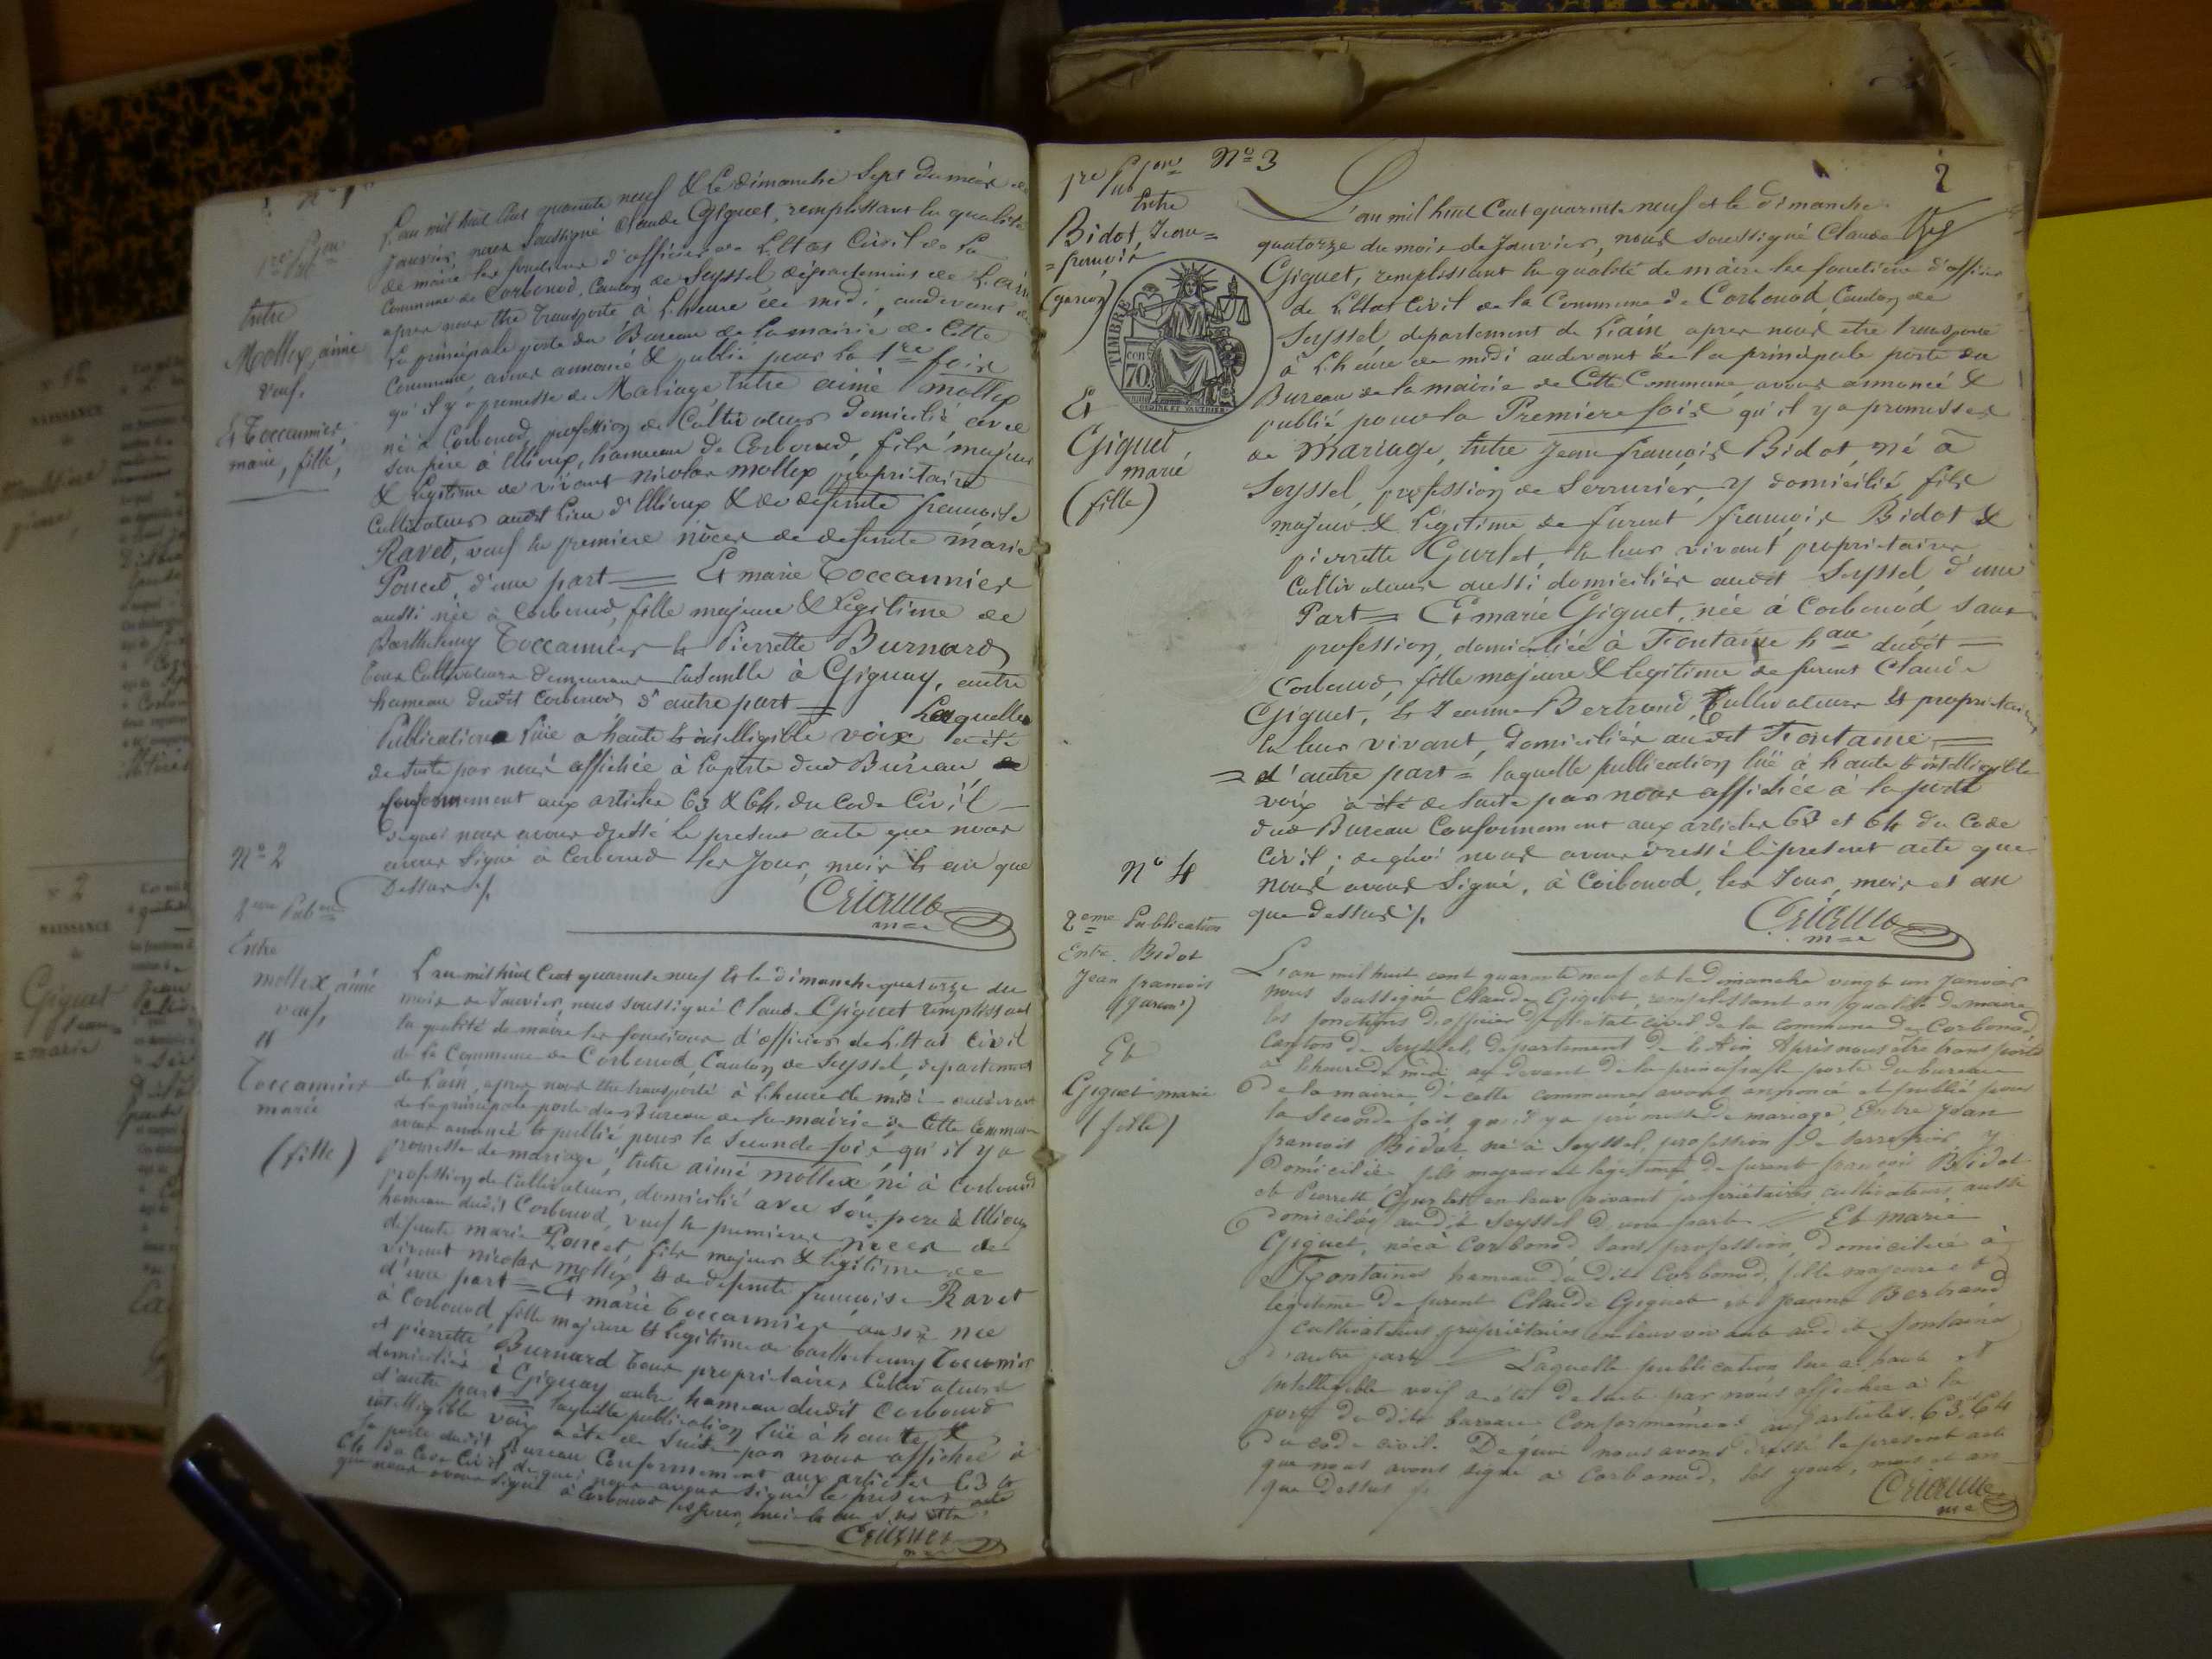 N° 1
1re Pon
Entre
Mollex aimé
veuf,
Et Toccannier,
marie, fille,
L'an mil huit Cent quarante neuf & le dimanche Sept du mois de
Janvier, nous Soussigné Claude Giguet, remplissant la qualité
de maire les fonctions d'officier de L'Etat Civil de la
Commune de Corbonod, Canton de Seyssel département de L'ain
apres nous être transporté à L'heure de midi, audevant de
la principale porte du Bureau de la mairie de Cette
Commune avons annoncé & publié pour la 1re fois
qu'il y a promesse de Mariage Entre aimé mollex
né à Corbonod, profession de Cultivateur domicilié avec
son père à Elloux, hameau de Corbonod, fils majeur
& Legitime de vivant nicolas mollex propriétaire
Cultivateur audit Lieu d' & de defunte francoise
Ravet, veuf en premiere nôces de defunte marie
Poncet, d'une part = Et marie Toccannier
aussi née à Corbonod, fille majeure & Legitime de
Barthelemy Toccannier & Pierrette Burnard
tous Cultivateurs demeurant Ensemble à Gignay, autre
hameau dudit Corbonod d'autre part = Laquelle
Publication Lüe a haute & intelligible voix a été
de suite par nous affichée à la porte dud Bureau
Conformement aux articles 63 & 64 du Code Civil
dequoi nous avons dressé le present acte que nous
avons Signé à Corbonod les Jour, mois & an que
Dessus ./.
N° 2
2eme Pubon
Entre
mollex aimé
veuf,
et
Toccannier
marie
(fille)
L'an mil huit Cent quarante neuf Et le dimanche quatorze du
mois de Janvier, nous soussigné Claude Giguet remplissant
la qualité de maire les fonctions d'officier de L'Etat Civil
de la Commune de Corbonod, Canton de Seyssel, département
de L'ain, apres nous être transporté à L'heure de midi audevant
de la principale porte du Bureau de la mairie de Cette Commune
avons annoncé & publié pour la seconde fois qu'il y a
promesse de mariage, Entre aimé mollex né à Corbonod
profession de Cultivateur, domicilié avec son pere à
hameau dudit Corbonod, veuf en premieres noces de
defunte marie Poncet, fils majeur & légitime de
vivant nicolas mollex, & de defunte francoise Ravet
d'une part = Et marie Toccannier aussi née
à Corbonod, fille majeure & Legitime de barthelemy Toccannier
et pierrette Burnard tous propriétaires Cultivateurs
domiciliés à Gignay autre hameau dudit Corbonod
d'autre part = laquelle publication lüe à haute &
intelligible voix a été de Suite par nous affichée à
la porte dudit Bureau Conformement aux articles 63 &
64 du Code Civil dequoi nous avons signé le present acte
que nous avons signé à Corbonod les Jour, mois & an
2
1re Pubon N° 3
Entre
Bidot, Jean=
=francois
(garcon)
TIMBRE
cen
70.
Et
Giguet
marie
(fille)
L'an mil huit Cent quarante neuf et le dimanche
quatorze du mois de Janvier, nous soussigné Claude
Giguet, remplissant la qualité de maire les fonctions d'officier
de L'Etat Civil de la Commune de Corbonod, Canton de
Seyssel, departement de L'ain, apres nous etre transporté
à L'heure de midi audevant de la principale porte du
Bureau de la mairie de Cette Commune, avons annoncé &
publié pour la Premiere fois qu'il y a promesses
de Mariage, Entre Jean francois Bidot, né à
Seyssel, profession de Serrurier, y domicilié, fils
majeur & Légitime de furent francois Bidot &
pierrette Gurlet, en leur vivant propriétaires
Cultivateurs aussi domiciliés audit Seyssel, d'une
Part = Et marie Giguet, née à Corbonod, sans
profession, domiciliée à Fontaine hau dudit
Corbonod, fille majeure & legitime de furent Claude
Giguet, & Jeanne Bertrand, Cultivateurs & propriétaires
en leur vivant, domiciliés audit Fontaine =
= d'autre part = laquelle publication lüe à haute & intelligible
voix a été de suite par nous affichée à la porte
dud Bureau Conformement aux articles 63 et 64 du Code
Civil ; de quoi nous avons dressé le present acte que
nous avons Signé, à Corbonod, les Jour, mois et an
que dessus ./.
N° 4
2eme Publication
Entre Bidot
Jean francois
(garcon)
Et
Giguet marie
(fille)
L'an mil huit cent quarante neuf et le dimanche vingt un Janvier
nous soussigné Claude Giguet, remplissant en qualité de maire
les fonctions d'officier de l'état civil de la commune de Corbonod,
Canton de Seyssel, departement de l'Ain Après nous être transporté
à l'heure de midi au devant de la principale porte du bureau
de la mairie de cette commune avons annoncé et publié pour
la seconde fois, qu'il y a promesse de mariage, Entre Jean
francois Bidot né à Seyssel, profession de serrurier, y
domicilié, fils majeur et legitime de furent françois Bidot
et Pierrette Gurlet en leur vivant propriétaires cultivateurs aussi
domiciliés audit Seyssel d'une part Et marie
Giguet, née à Corbonod, sans profession, domiciliée à
Fontaines hameau du dit Corbonod, fille majeure et
legitime de furent Claude Giguet et Jeanne Bertrand
cultivateurs propriétaires en leur vivant aud it fontaines
d'autre part Laquelle publication lue à haute et
intelligible voix a été de suite par nous affichée à la
porte du dit bureau Conformément aux articles 63 et 64
du code civil. De quoi nous avons dressé le present acte
que nous avons signé à Corbonod, les jour, mois et an
que dessus ./.
N° 2
NAISSANCE
de
Giguet
Jean=
=marie